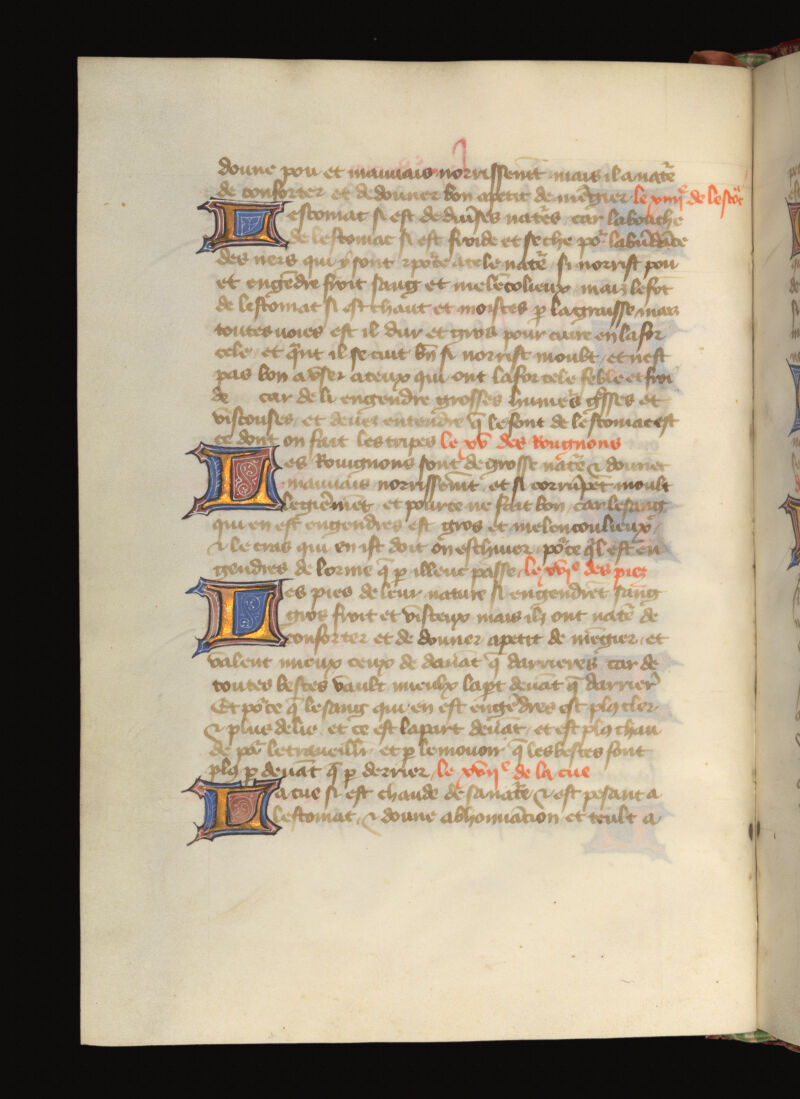 donne pou et mauuais norrissemt mais il a natē
de conforter et de donner bon apetit de mēgier le xiiij de lestōt
Lestomat si est de diūses natēs car la bouche
de lestomac si est froide et seche po labūdāce
des ners qui y sont 7 pote a cele natē si norrist pou
et engēdre froit sang et melēcolieux mais le fōt
de lestomat si est chaut et moistes p la graisse mais
toutes uoies est il dur et gros pour cuire en la for
cele et qnt il se cuit bn si norrist moult et nest
pas bon a vser a ceux qui ont la forcele feble et froi
de car de li engendre grosses humēs gsses et
viscouses et deuez entendre q le font de lestomac est
ce dont on fait les tripes le xv des Rougnons
Les Rouignons sont de grosse natē 7 donnet
mauuais norrissemt et si corrūpet moult
legieremēt et pource ne sait bon car le sang
qui en est engendres est gros et melencoulieux
7 le cras qui en ist doit on eschiuer pote ql est en
gendres de lorine q p illeuc passe le xvje des piez
Les pies de leur nature si engendrēt sang
gros froit et visceux mais ilz ont natē de
conforter et de donner apetit de mēgier et
valent mieux ceux de deuāt q darrieres car de
toutes bestes vault mieulx la pt deuāt q darriere
Et pote q le sang qui en est engedres est plus cler
7 plus delie et ce est la part deuāt et est plus chau
de po le traueillr et p le mouoir q les bestes font
plus p deuāt q p derrier le xvije de la cue
La cue si est chaude de sa natē 7 est pesant a
lestomat 7 donne abhominacion et teult a